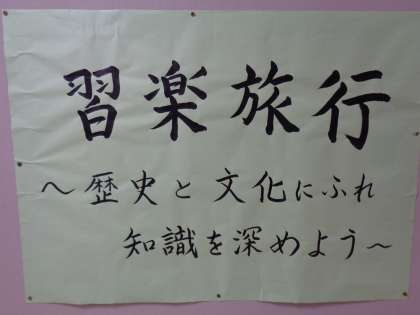 習楽旅行
～歴史と文化にふれ
知識を深めよう～